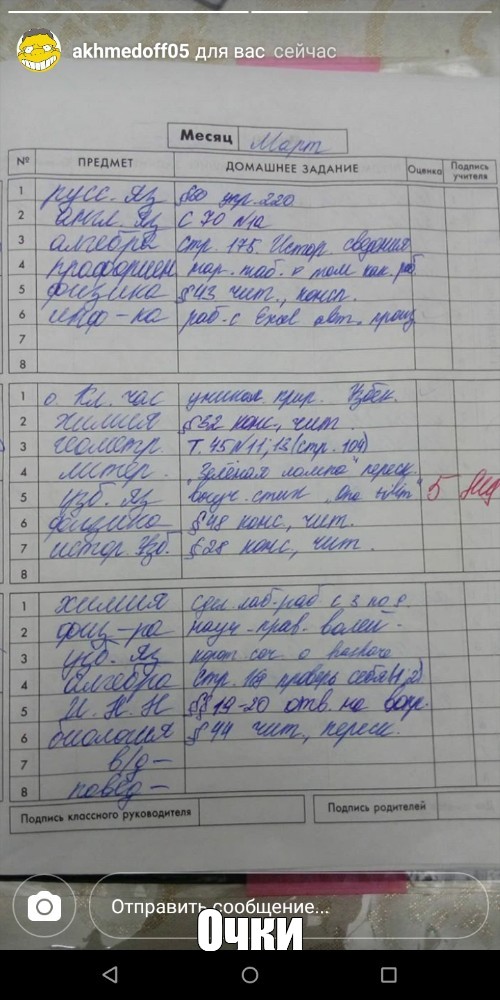 akhmedoff05 для вас сейчас
Месяц Март
№ ПРЕДМЕТ ДОМАШНЕЕ ЗАДАНИЕ Оценка Подпись учителя
1 русс. яз §60 упр. 220
2 англ. яз с 70 №1а
3 алгебра стр. 175. Истор. сведения
4 профориен
5 физика §43 чит., консп.
6 инф-ка раб. с Excel авт.
7
8
1 о. Кл. час прир. Узбек.
2 химия §32 конс., чит.
3 геометр. Т. 45 №11; 13 (стр. 104)
4 литер. "Зелёная лампа" переск.
5 узб. яз выуч. стих "Ona tilim" 5
6 физика §48 конс, чит.
7 истор. Узб. §28 конс, чит.
8
1 химия сдел. лаб. раб с 3 по 9.
2 физ-ра науч. прав. волей-
3 узб. яз соч. о
4 алгебра стр. 169 проверь себя (1, 2)
5 И. Н. Н §§19-20 отв. на вопр.
6 биология §44 чит, переск.
7 в/д-
8 повед-
Подпись классного руководителя Подпись родителей
Отправить сообщение...
Очки